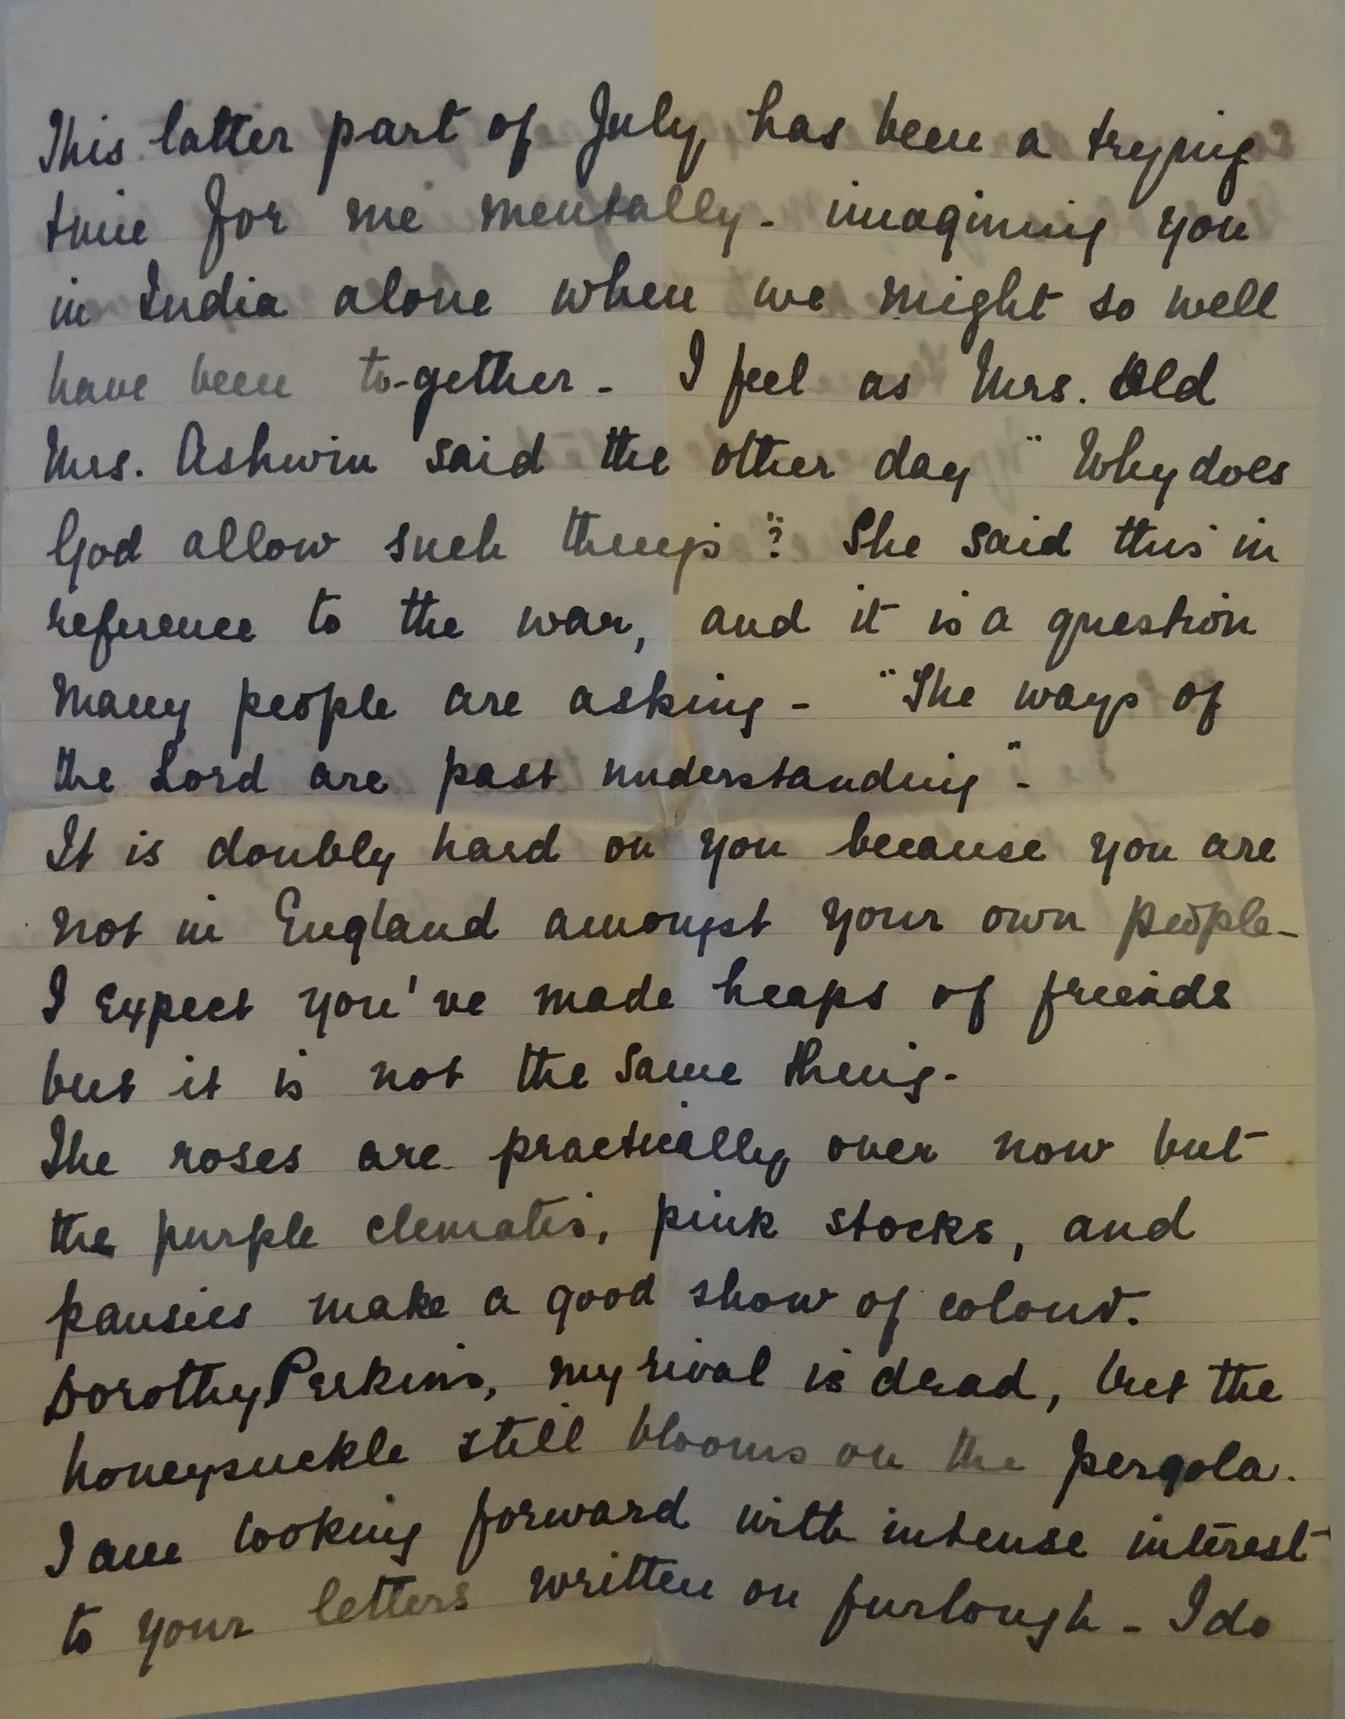 This latter part of July, has been a trying
time for me mentally - imagining you
in India alone when we might so well
have been to-gether - I feel as Mrs. Old
Mrs. Ashwin said the other day "Why does
God allow such things"? She said this in
reference to the war, and it is a question
many people are asking - "The ways of
the Lord are past understanding" -
It is doubly hard on you because you are
not in England amongst your own people -
I expect you've made heaps of friends
but it is not the same thing -
The roses are practically over now but
the purple clematis, pink stocks, and
pansies make a good show of colour.
Dorothy Perkins, my rival is dead, but the
honeysuckle still blooms on the pergola.
I am looking forward with intense interest
to your letters written on furlough - I do